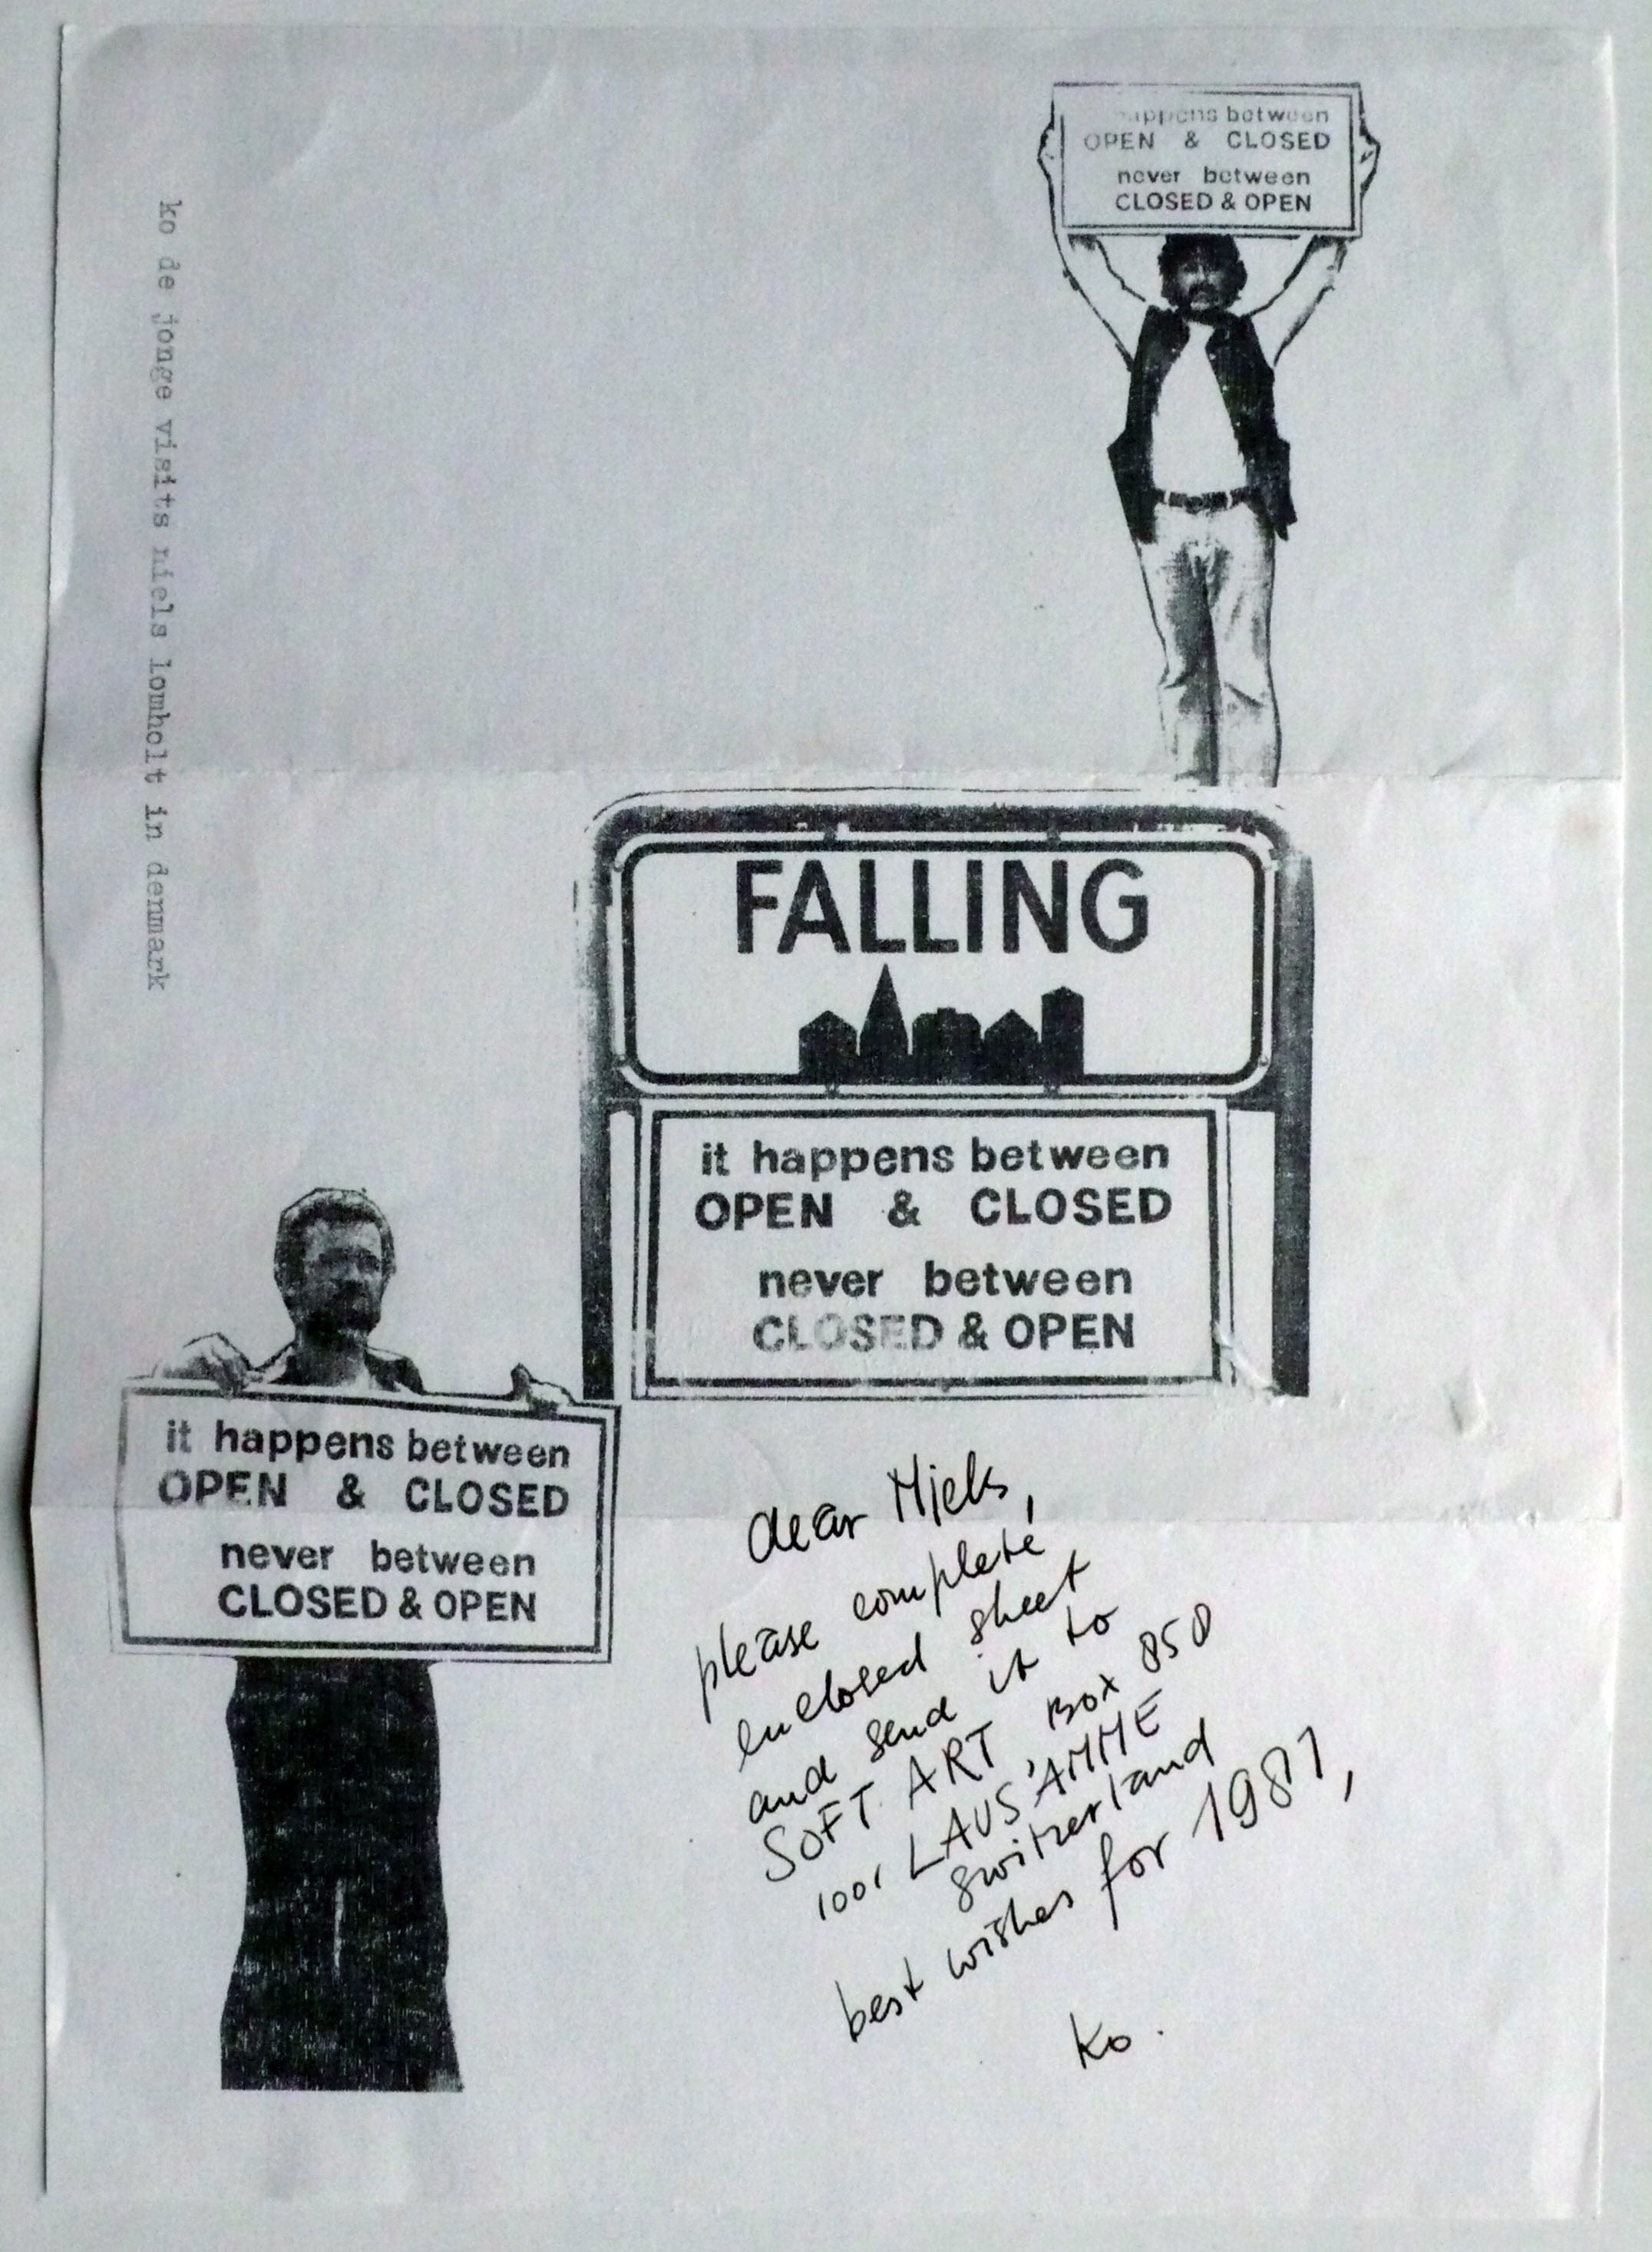 happens between
OPEN & CLOSED
never between
CLOSED & OPEN
ko de jonge visits niels lomholt in denmark
FALLING
it happens between
OPEN & CLOSED
never between
CLOSED & OPEN
it happens between
OPEN & CLOSED
never between
CLOSED & OPEN
dear Niels,
please complete
enclosed sheet
and send it to
SOFT ART Box 850
1001 LAUS'ANNE
switzerland
best wishes for 1981,
Ko.